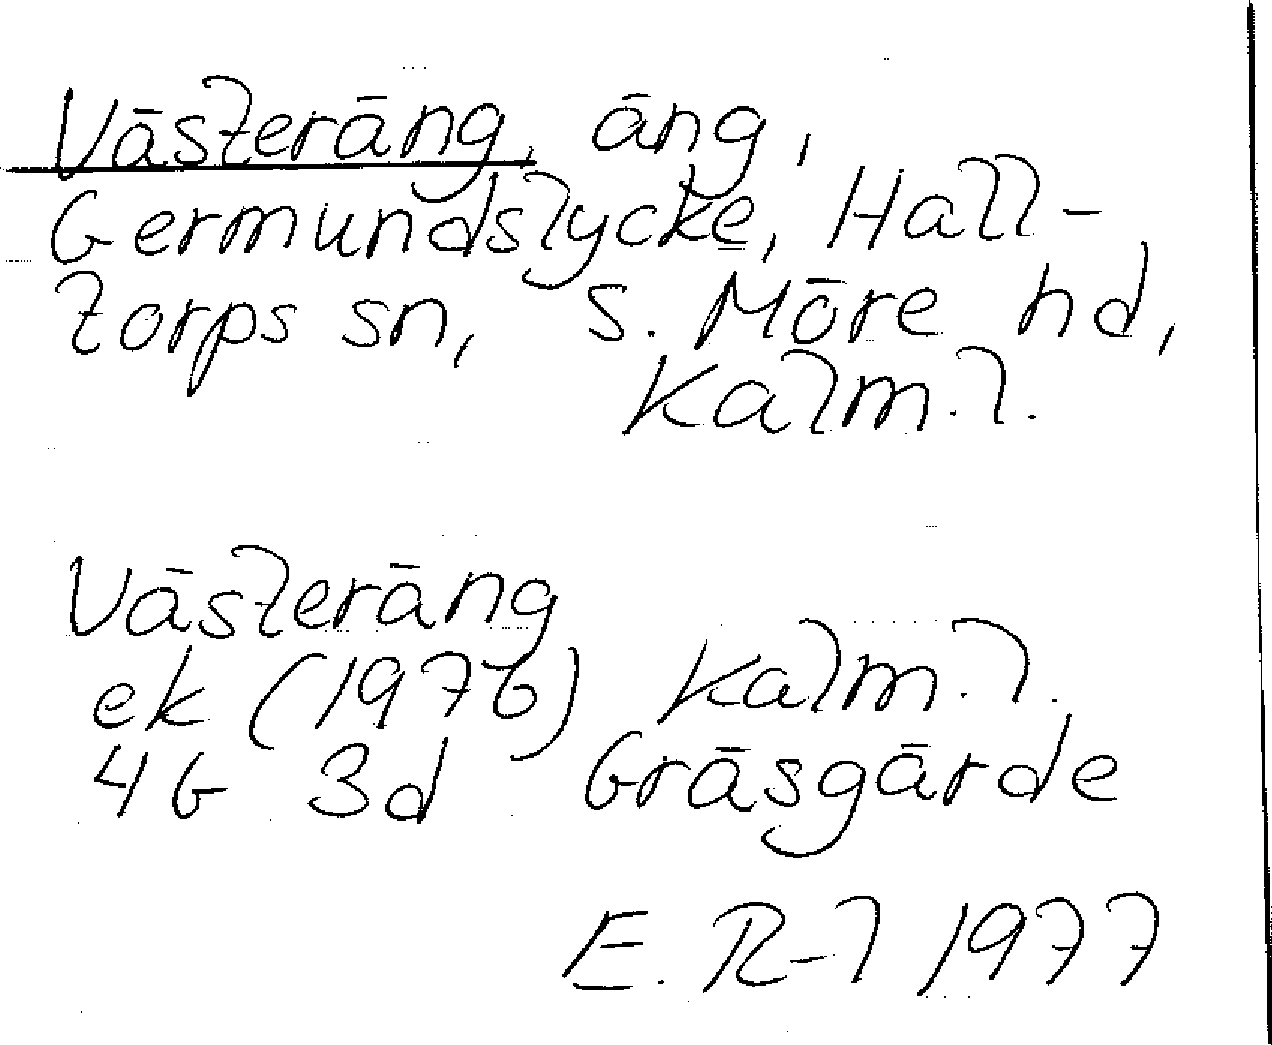 Västeräng, äng,
Germundslycke, Hall-
torps sn, S. Möre hd,
Kalm. l.
Västeräng
ek (1976) Kalm. l.
4G 3d Gräsgärde
E. R-l 1977